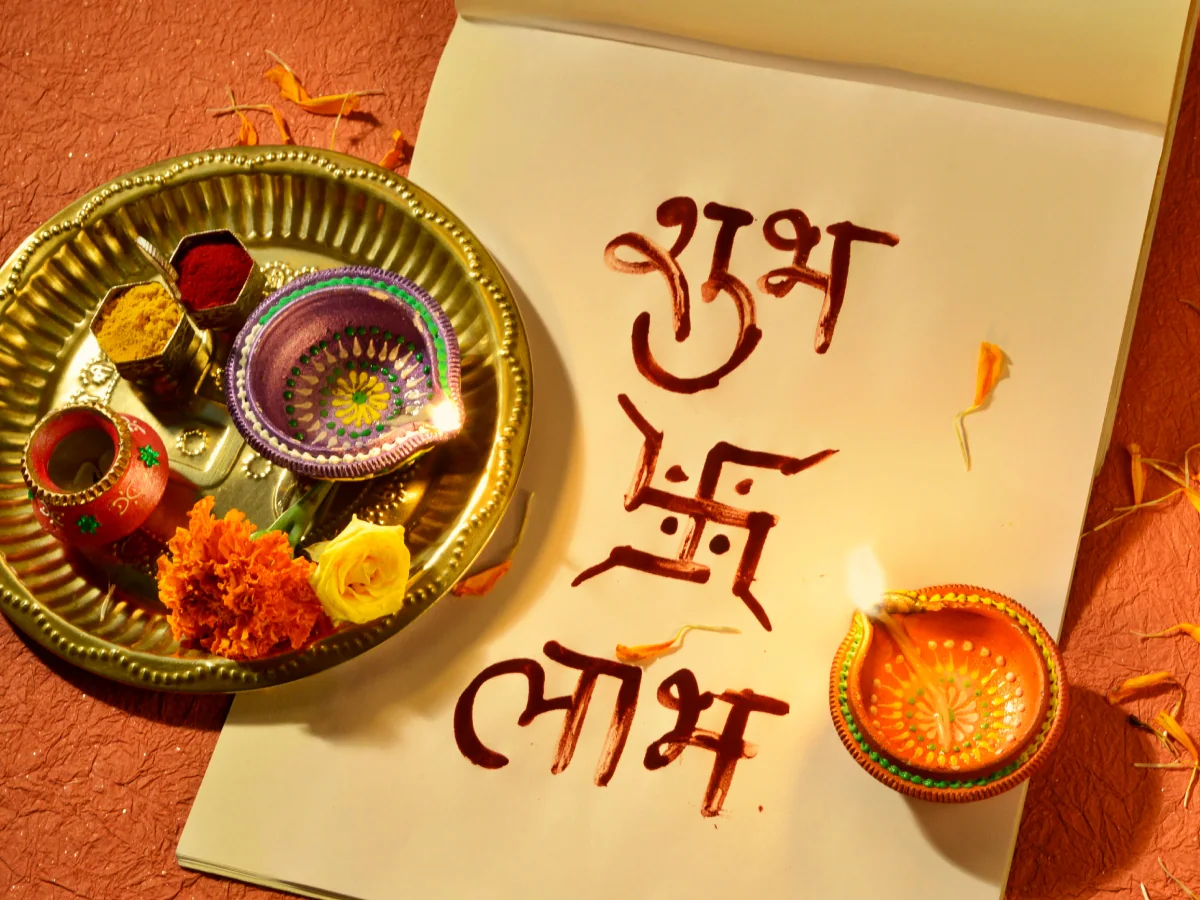 शुभ
卐
लाभ